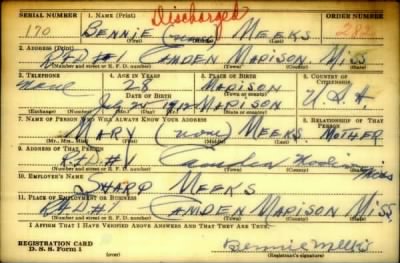 SERIAL NUMBER 1. NAME (Print) Discharged ORDER NUMBER
170 BENNIE (none) MEEKS 282
(First) (Middle) (Last)
2. ADDRESS (Print)
R.F.D #1 CAMDEN MADISON MISS
(Number and street or R. F. D. number) (Town) (County) (State)
3. TELEPHONE 4. AGE IN YEARS 5. PLACE OF BIRTH 6. COUNTRY OF CITIZENSHIP
none 28 MADISON
DATE OF BIRTH U.S.A.
1912 MADISON
(Exchange) (Number) (Mo.) (Day) (Yr.) (State or country)
7. NAME OF PERSON WHO WILL ALWAYS KNOW YOUR ADDRESS 8. RELATIONSHIP OF THAT PERSON
MARY (none) MEEKS MOTHER
(Mr., Mrs., Miss) (First) (Middle) (Last)
9. ADDRESS OF THAT PERSON
R.F.D. #1 Camden Madison Miss
(Number and street or R. F. D. number) (Town) (County) (State)
10. EMPLOYER'S NAME
SHARP MEEKS
11. PLACE OF EMPLOYMENT OR BUSINESS
R.F.D #1 CAMDEN MADISON MISS.
(Number and street or R. F. D. number) (Town) (County) (State)
I AFFIRM THAT I HAVE VERIFIED ABOVE ANSWERS AND THAT THEY ARE TRUE.
REGISTRATION CARD
D. S. S. Form 1 Bennie Meeks
(Registrant's signature)